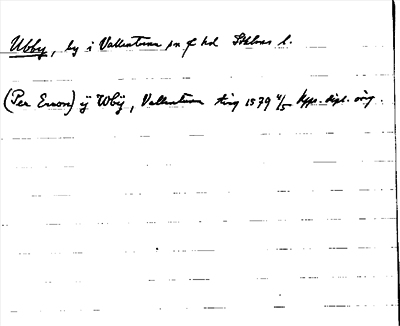 Ubby, by i Vallentuna sn o f hd Sthlms l.
(Per Ersson) ÿ Wbÿ, Vallentuna ting 1579 4/5 Kpps. dipl. orig.